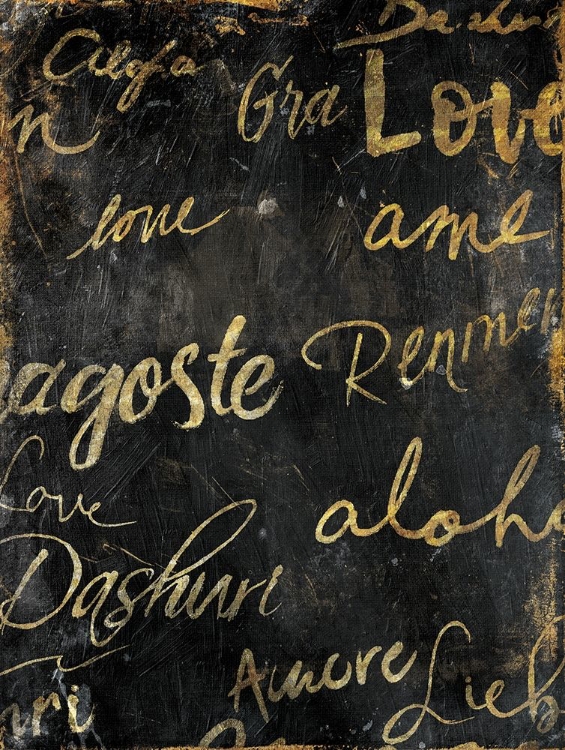 Gra
Love
n
love
ame
agoste
Renmen
Love
aloha
Dashuri
Amore
Lieb
uri